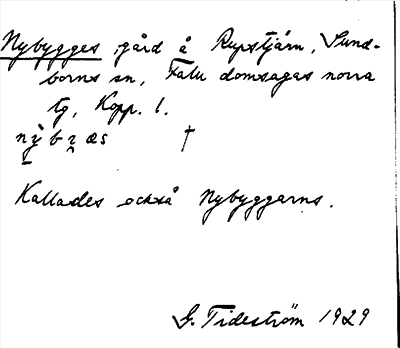 Nybygges, gård å Rupstjärn, Sund-
borns sn, Falu domsagas norra
tg, Kopp. l.
nỳbɀæs †
Kallades också Nybyggarns.
G. Tideström 1929